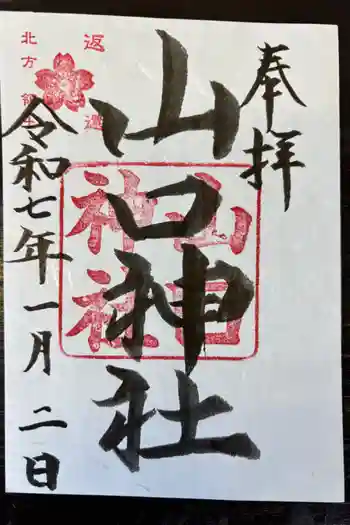 奉拝
山口神社
山口
神社
返還
北方領土
令和七年一月二日